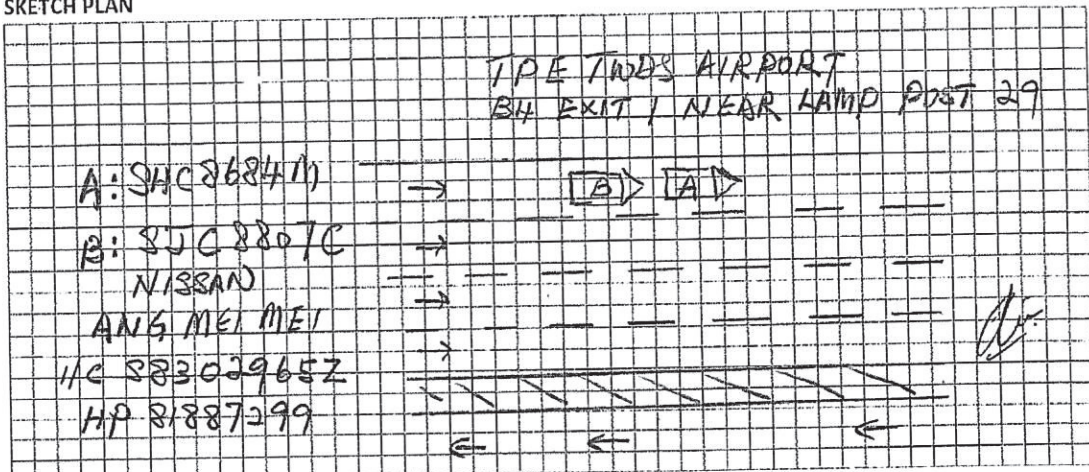 SKETCH PLAN
TPE TWDS AIRPORT
B4 EXIT 1 NEAR LAMP POST 29
A: SHC8684M
B A
B: SJC8807C
NISSAN
ANG MEI MEI
I/C S8302965Z
HP 81887299